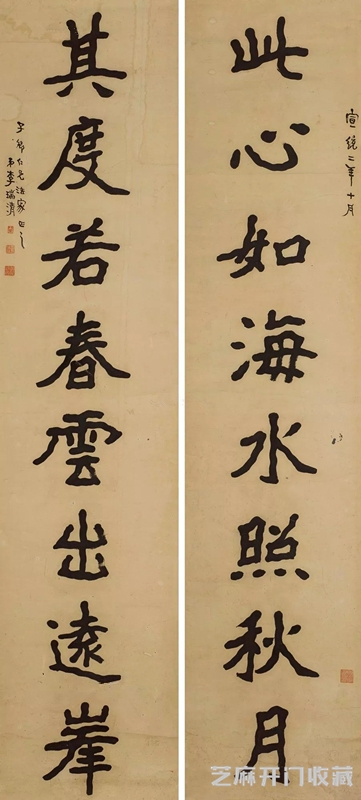 宣統二年十月
此心如海水照秋月
其度若春雲出遠峯
子 仁兄法家正之
弟李瑞清
芝麻开门收藏